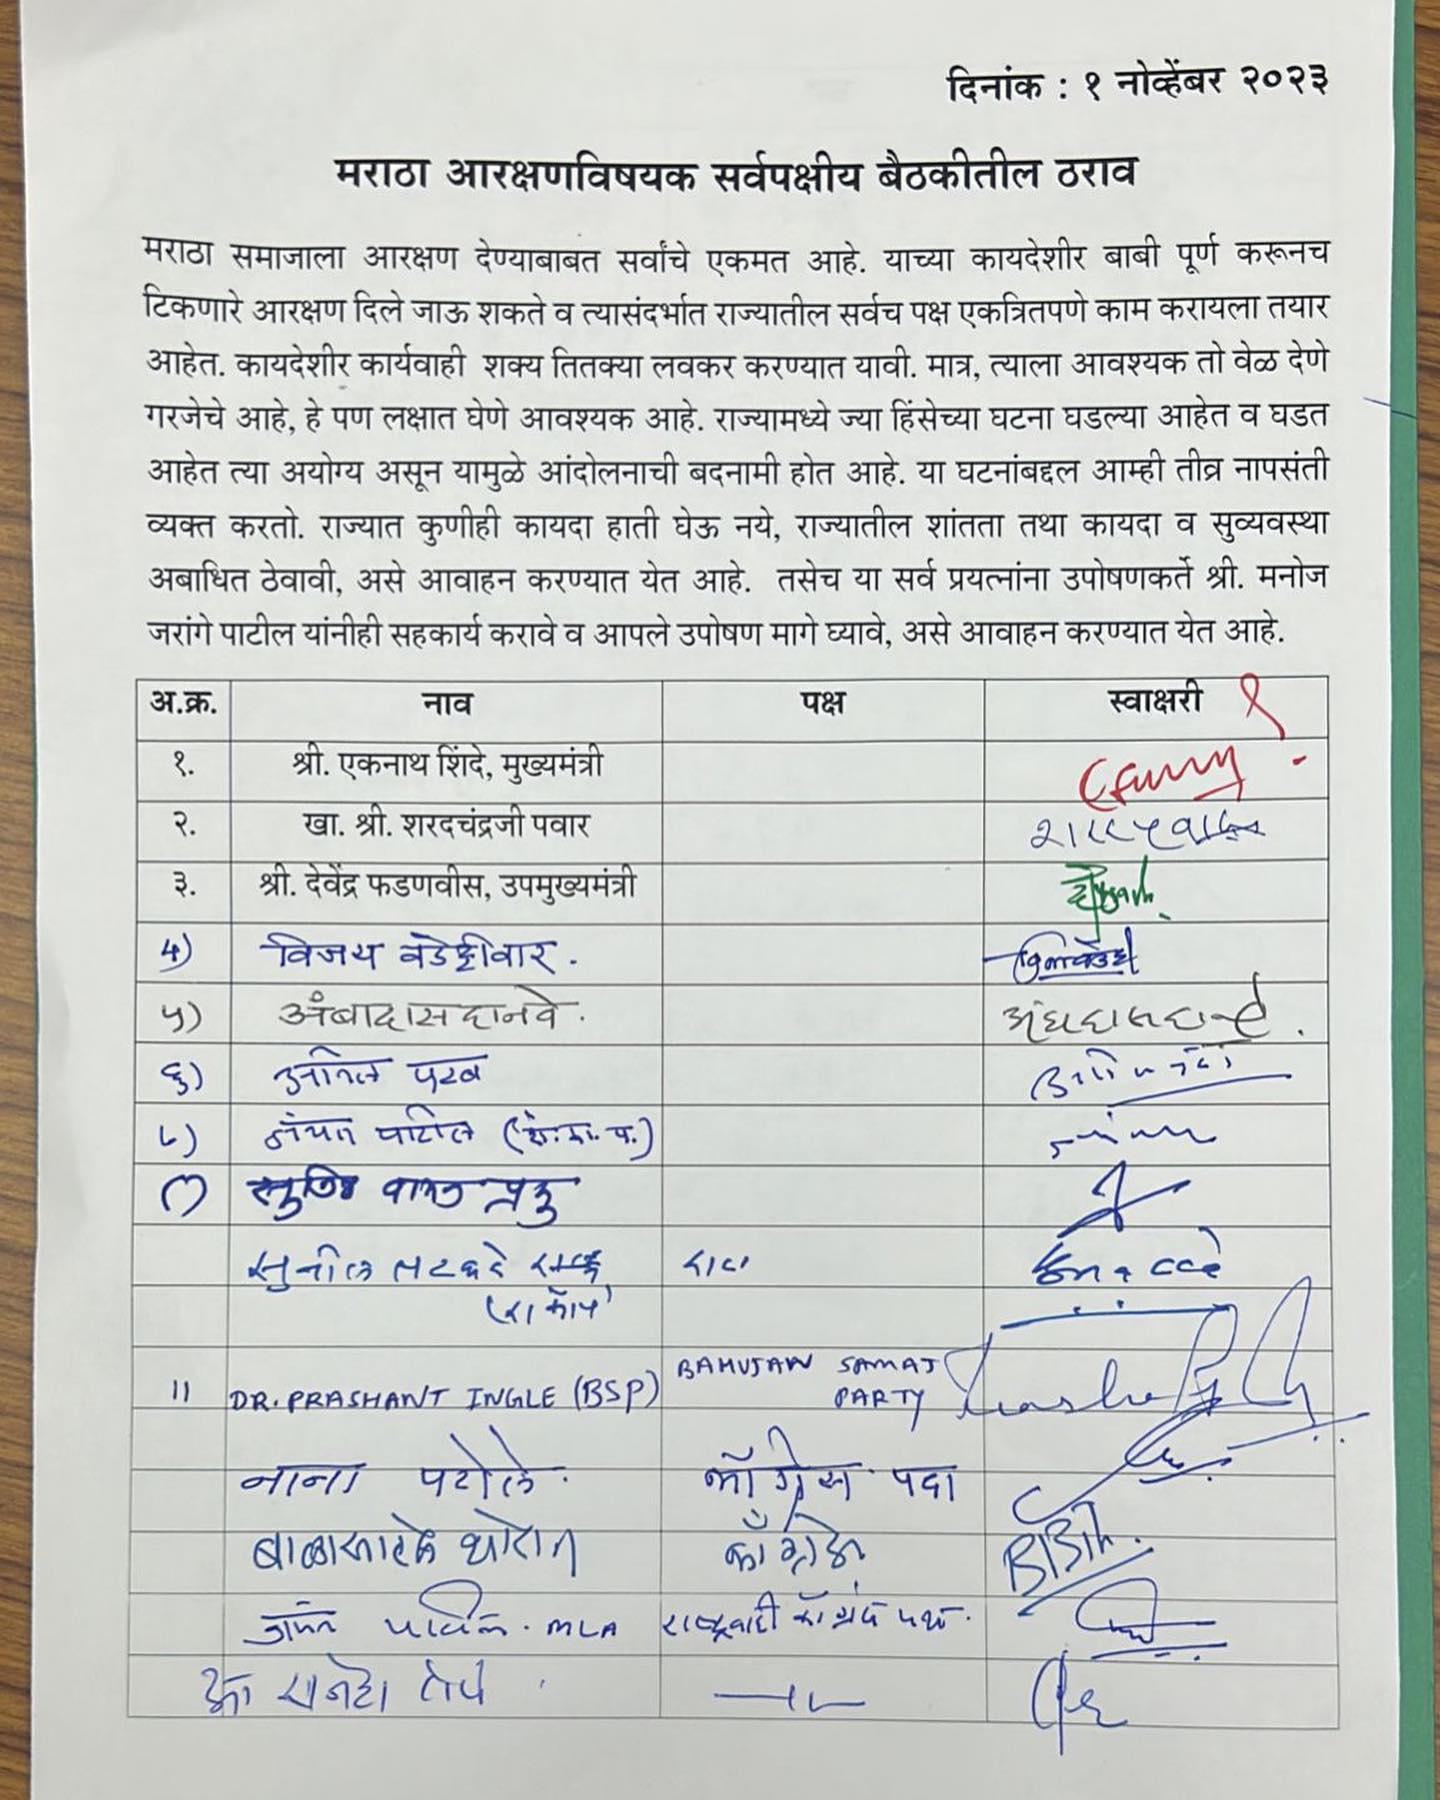 दिनांक : १ नोव्हेंबर २०२३
मराठा आरक्षणविषयक सर्वपक्षीय बैठकीतील ठराव
मराठा समाजाला आरक्षण देण्याबाबत सर्वांचे एकमत आहे. याच्या कायदेशीर बाबी पूर्ण करूनच
टिकणारे आरक्षण दिले जाऊ शकते व त्यासंदर्भात राज्यातील सर्वच पक्ष एकत्रितपणे काम करायला तयार
आहेत. कायदेशीर कार्यवाही शक्य तितक्या लवकर करण्यात यावी. मात्र, त्याला आवश्यक तो वेळ देणे
गरजेचे आहे, हे पण लक्षात घेणे आवश्यक आहे. राज्यामध्ये ज्या हिंसेच्या घटना घडल्या आहेत व घडत
आहेत त्या अयोग्य असून यामुळे आंदोलनाची बदनामी होत आहे. या घटनांबद्दल आम्ही तीव्र नापसंती
व्यक्त करतो. राज्यात कुणीही कायदा हाती घेऊ नये, राज्यातील शांतता तथा कायदा व सुव्यवस्था
अबाधित ठेवावी, असे आवाहन करण्यात येत आहे. तसेच या सर्व प्रयत्नांना उपोषणकर्ते श्री. मनोज
जरांगे पाटील यांनीही सहकार्य करावे व आपले उपोषण मागे घ्यावे, असे आवाहन करण्यात येत आहे.
अ.क्र. नाव पक्ष स्वाक्षरी
१. श्री. एकनाथ शिंदे, मुख्यमंत्री
२. खा. श्री. शरदचंद्रजी पवार शरद पवार
३. श्री. देवेंद्र फडणवीस, उपमुख्यमंत्री
४) विजय वडेट्टीवार.
५) अंबादास दानवे. अंबादास दानवे.
६) अनिल परब
७) जयंत पाटील (शे.का.प.)
सुनील तटकरे
11 DR. PRASHANT INGLE (BSP) BAHUJAN SAMAJ
PARTY
नाना पटोले. काँग्रेस पक्ष
बाळासाहेब थोरात काँग्रेस
जयंत पाटील. MLA राष्ट्रवादी काँग्रेस पक्ष.